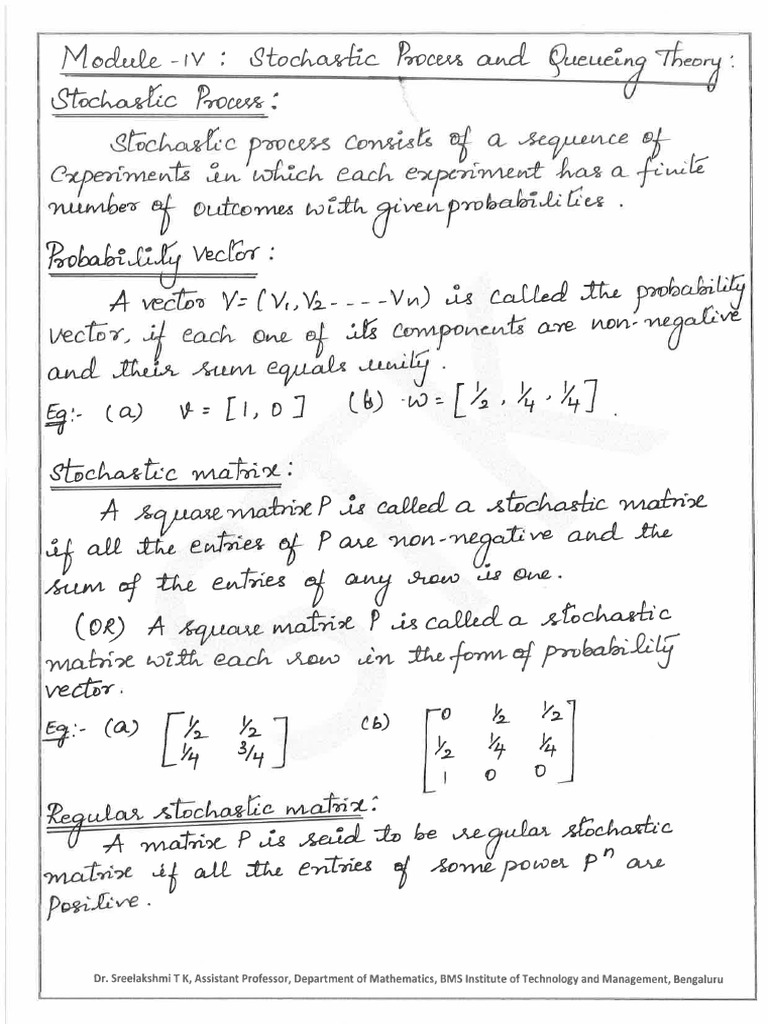 Module -IV : Stochastic Process and Queueing Theory :
Stochastic Process :
Stochastic process consists of a sequence of
Experiments in which each experiment has a finite
number of outcomes with given probabilities .
Probability Vector :
A vector V = (V1, V2 - - - - Vn) is called the probability
vector, if each one of its components are non-negative
and their sum equals unity .
Eg :- (a) v = [1, 0] (b) w = [1/2, 1/4, 1/4] .
Stochastic matrix :
A square matrix P is called a stochastic matrix
if all the entries of P are non-negative and the
sum of the entries of any row is one.
(OR) A square matrix P is called a stochastic
matrix with each row in the form of probability
vector.
Eg :- (a) [1/2 1/2 (b) [0 1/2 1/2
1/4 3/4] 1/2 1/4 1/4
1 0 0]
Regular stochastic matrix :
A matrix P is said to be regular stochastic
matrix if all the entries of some power P^n are
Positive .
Dr. Sreelakshmi T K, Assistant Professor, Department of Mathematics, BMS Institute of Technology and Management, Bengaluru
STK